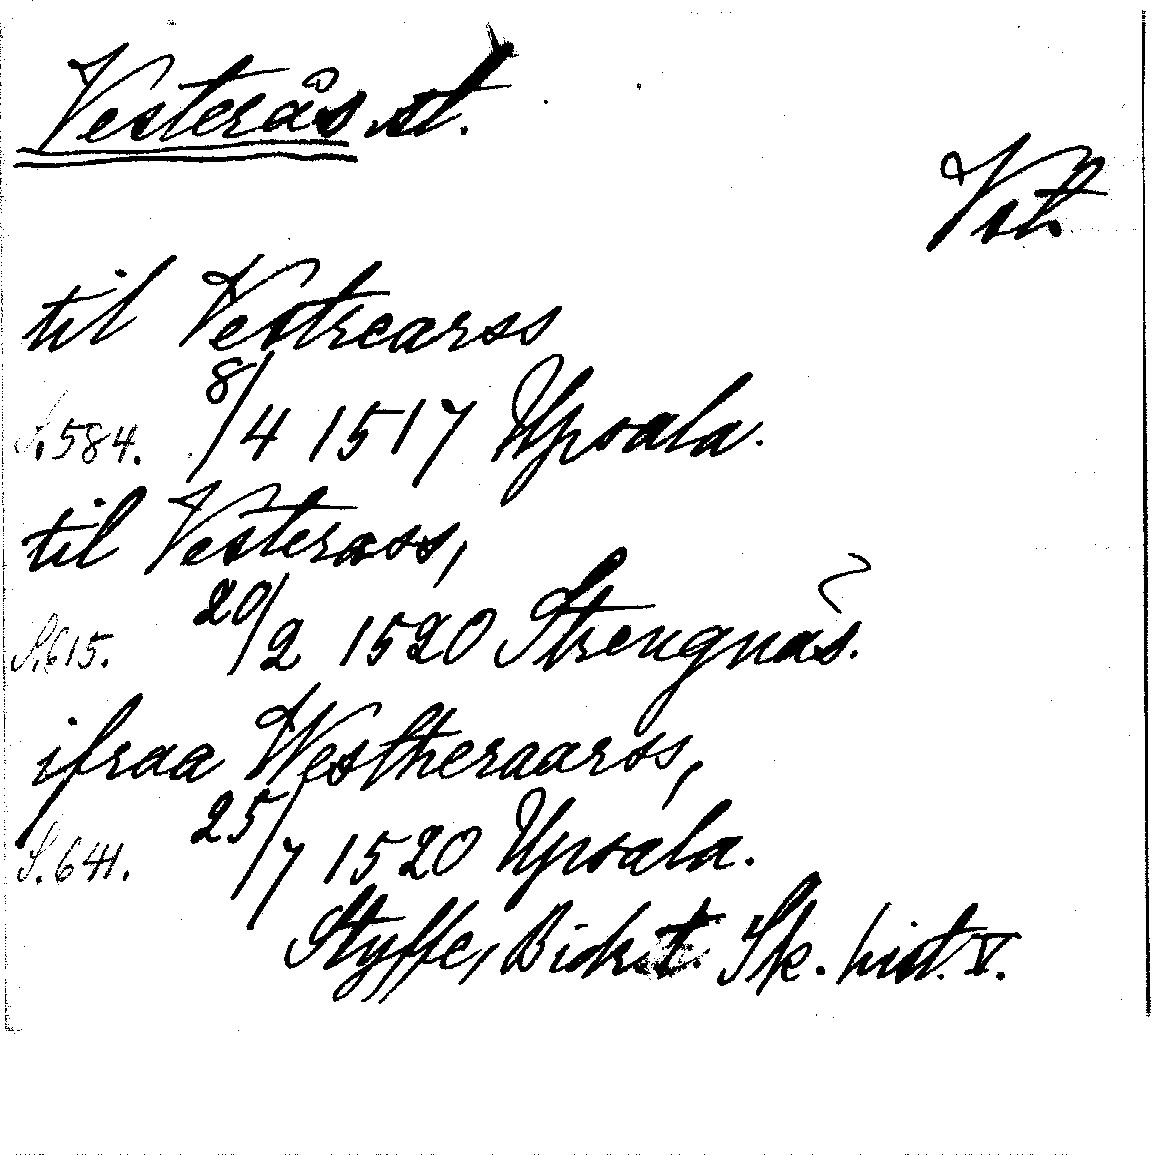 Vesterås st.
Vst.
til Vestrearss
S. 584. 8/4 1517 Upsala.
til Vesterass,
S. 615. 20/2 1520 Strengnäs.
ifraa Westheraarss,
S. 641. 25/7 1520 Upsala.
Styffe, Bidr. t. Sk. hist. V.